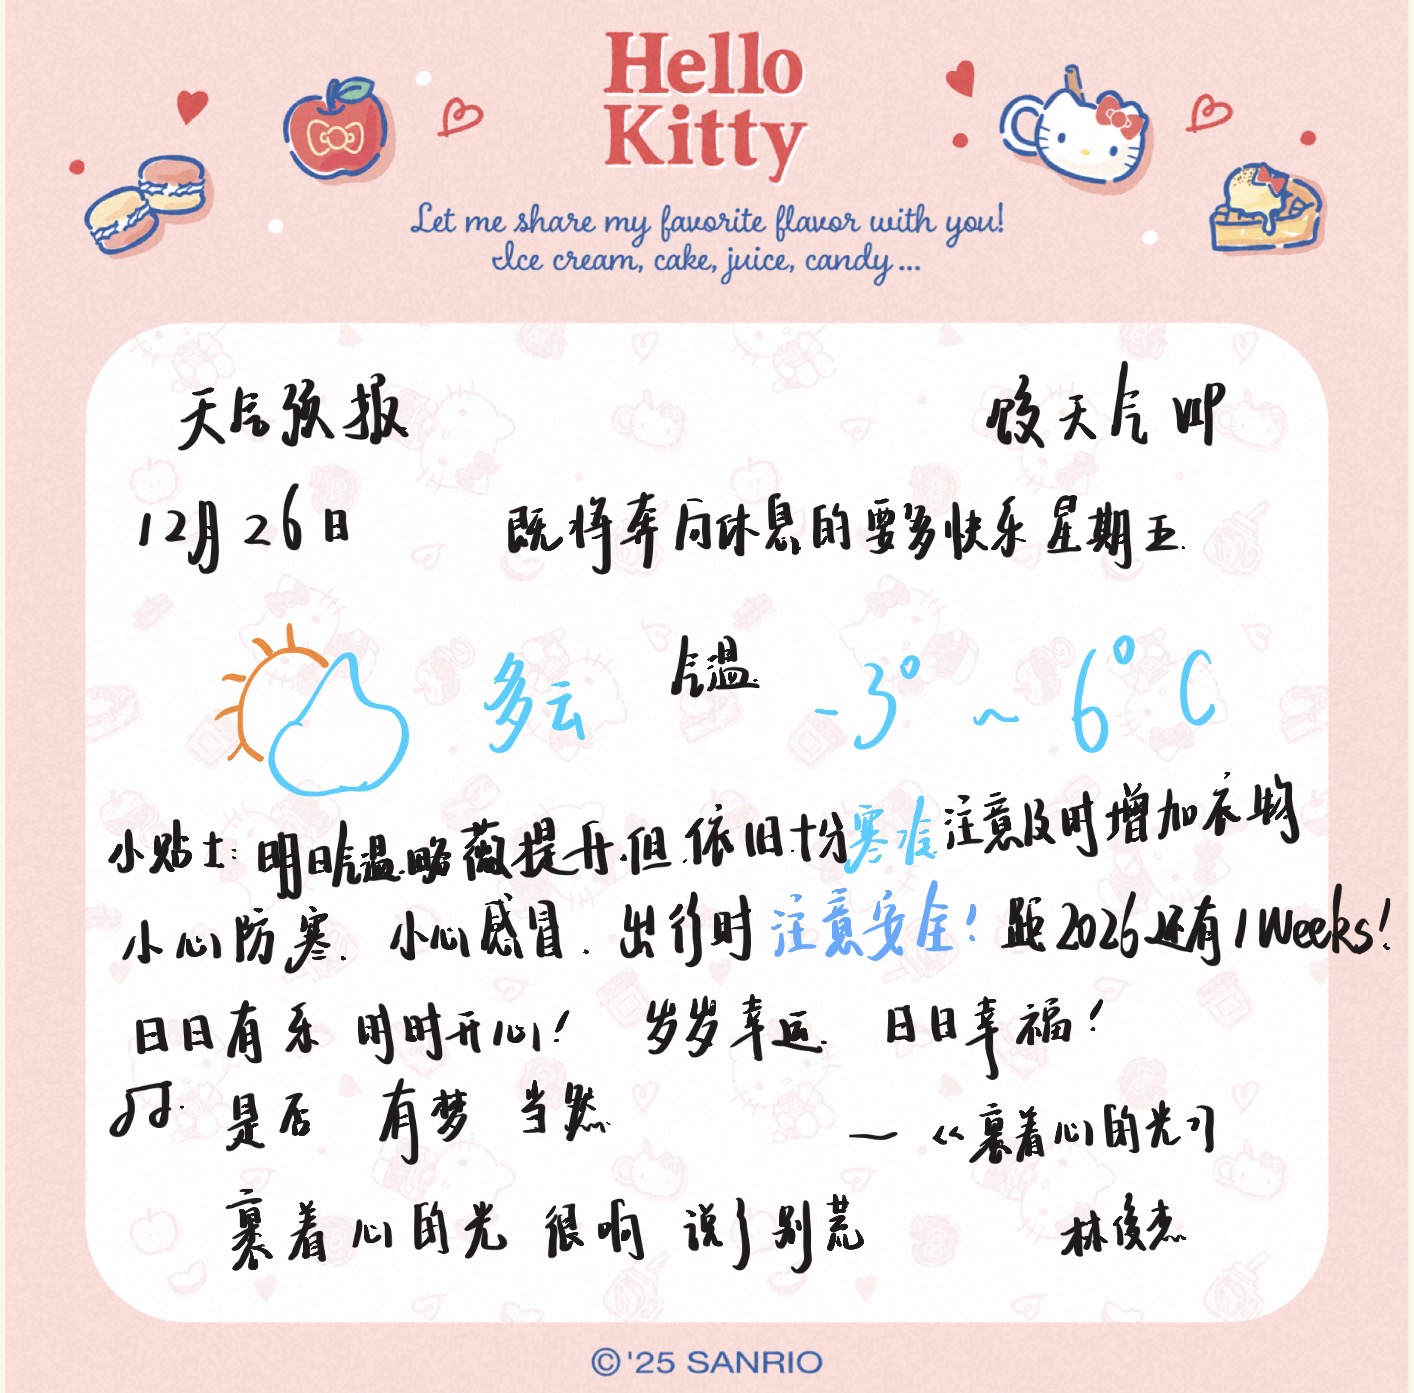 Hello
Kitty
Let me share my favorite flavor with you!
Ice cream, cake, juice, candy...
天气预报 天气 VIP
12月26日 既将奔向休息的要多快乐星期五.
多云 气温 -3° ~ 6°C
小贴士: 明日气温略薇提升.但.依旧十分寒凌注意及时增加衣物
小心防寒. 小心感冒. 出行时注意安全! 距2026还有1Weeks!
日日有乐 时时开心! 岁岁幸运. 日日幸福!
是否 有梦 当然 — 《裹着心的光》
裹着心的光 很响 说了别荒 林俊杰
© '25 SANRIO